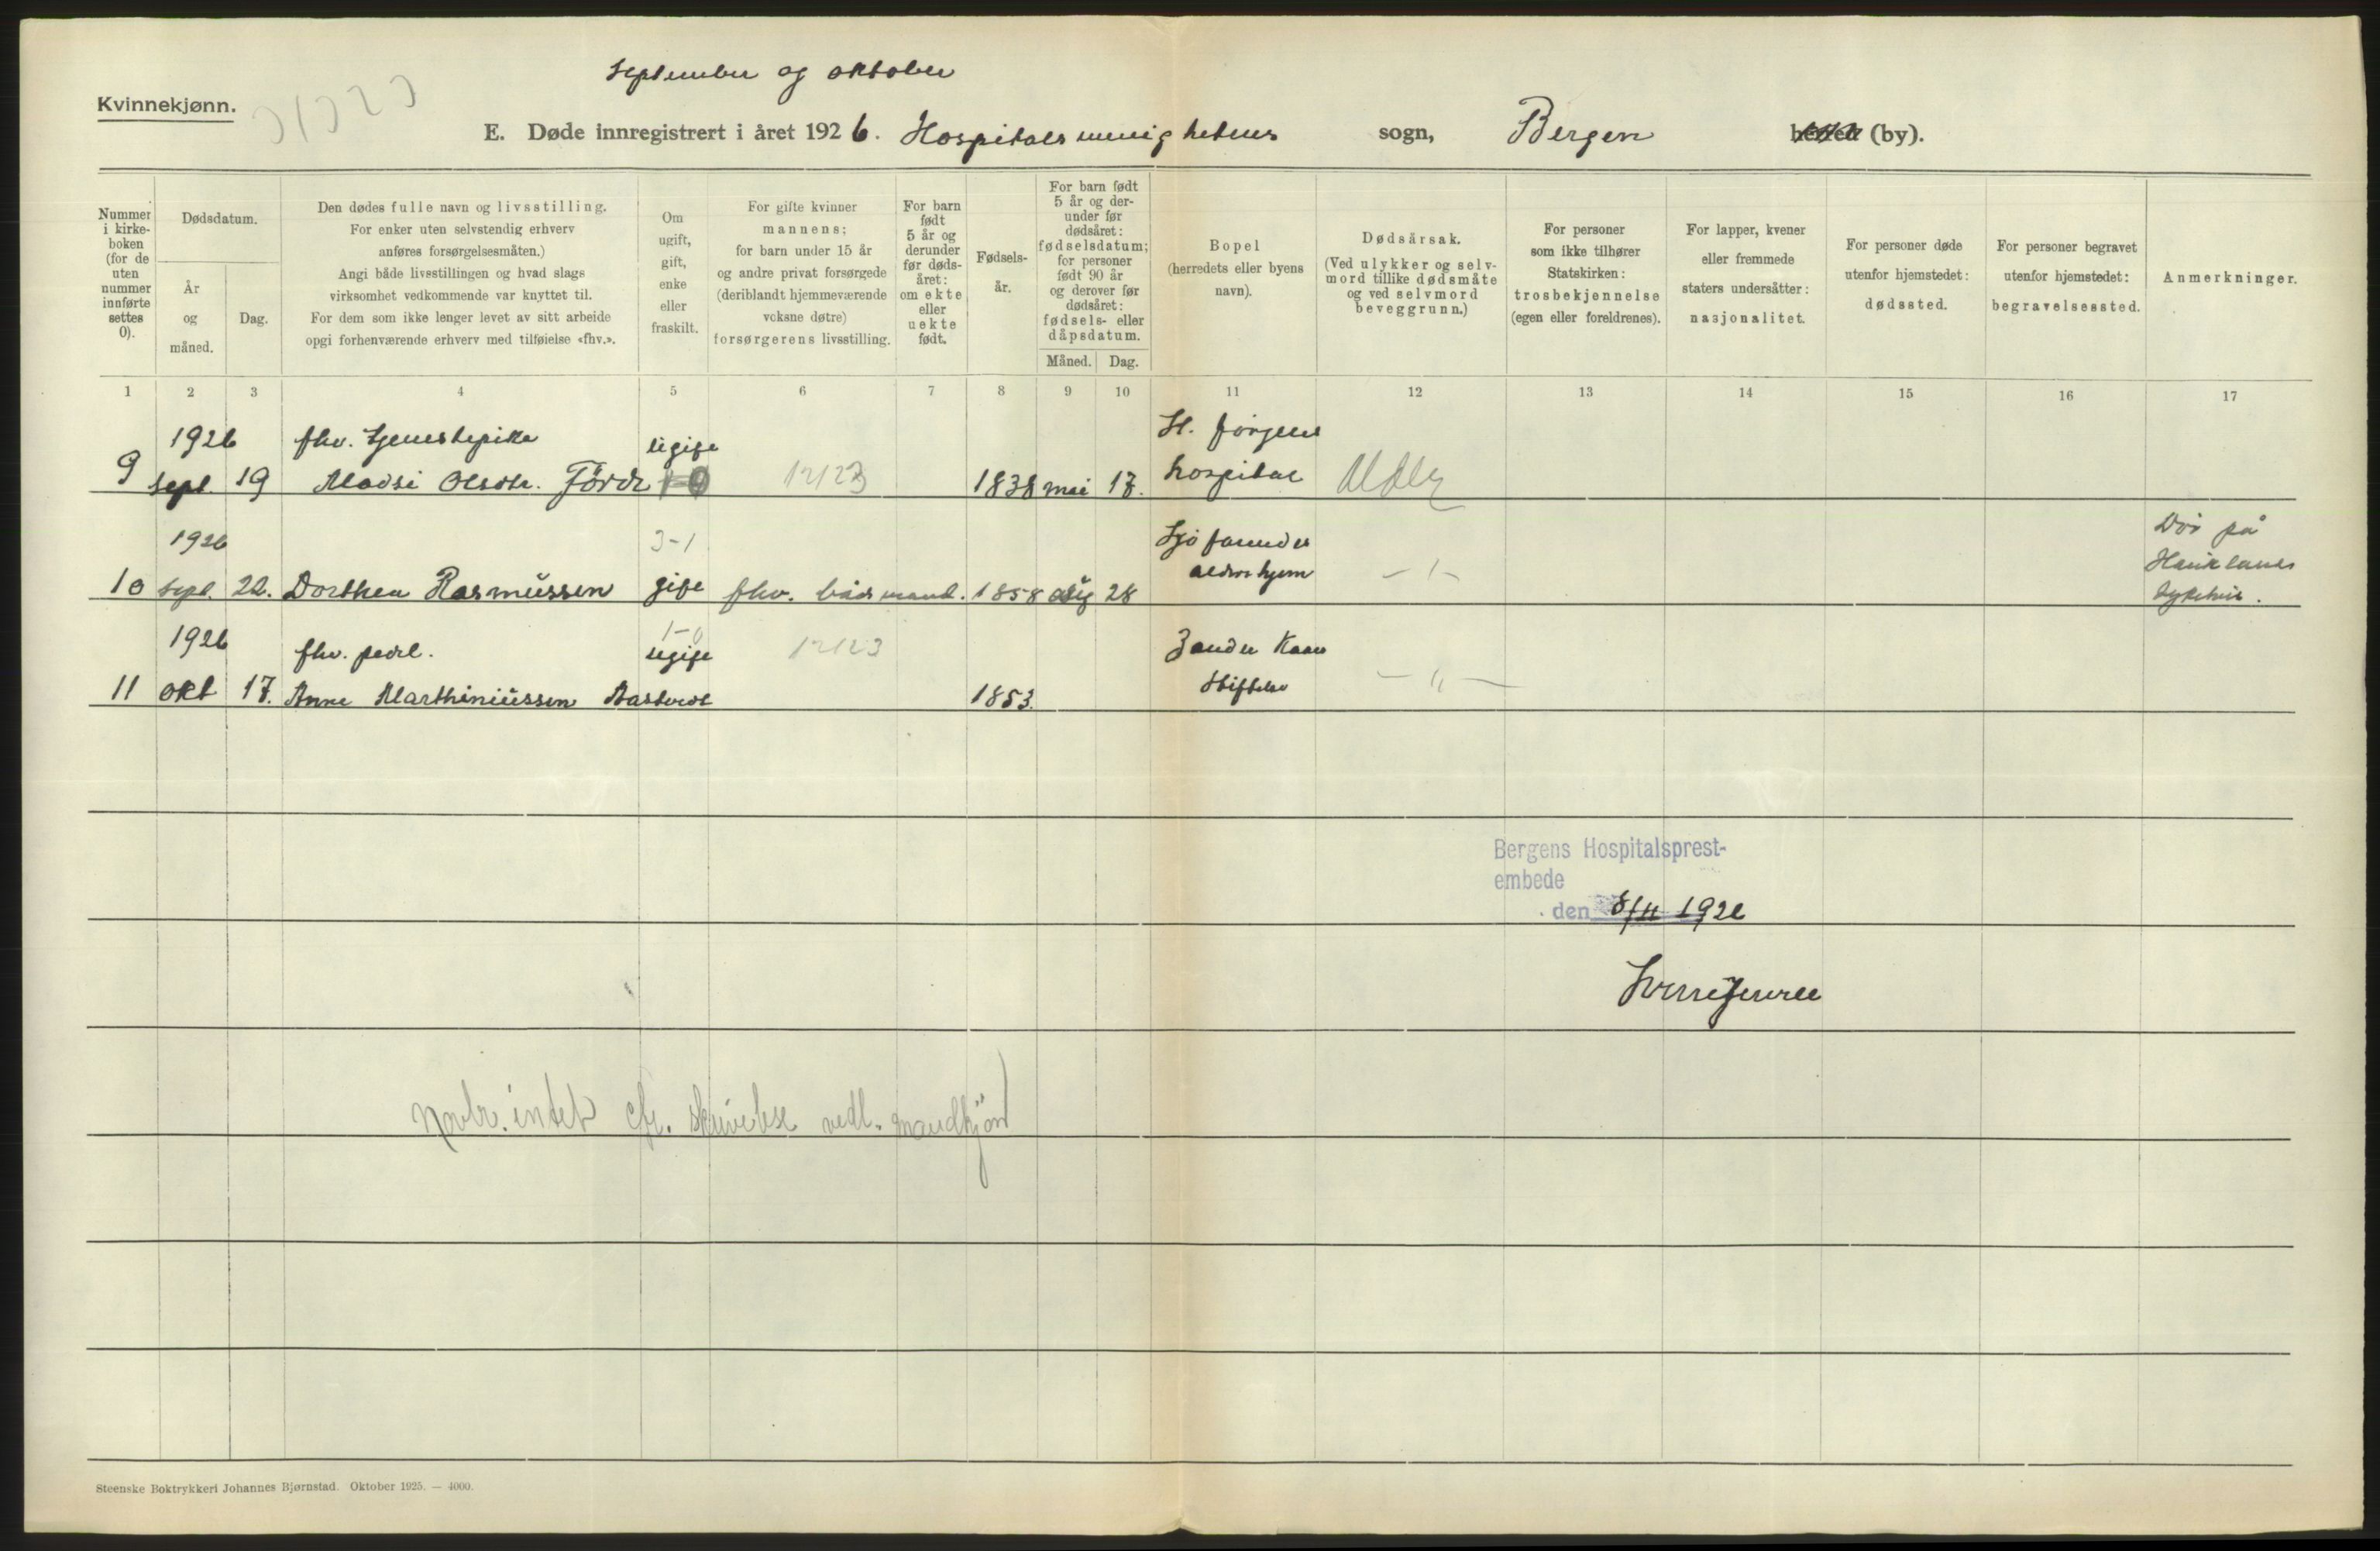 September og oktober
Kvinnekjønn.
E. Døde innregistrert i året 1926. Hospitalsmenighetens sogn, Bergen herred (by).
Nummer i kirkeboken (for de uten nummer innførte settes 0).
Dødsdatum.
År og måned.
Dag.
Den dødes fulle navn og livsstilling.
For enker uten selvstendig erhverv
anføres forsørgelsesmåten.)
Angi både livsstillingen og hvad slags
virksomhet vedkommende var knyttet til.
For dem som ikke lenger levet av sitt arbeide
opgi forhenværende erhverv med tilføielse «fhv.».
Om ugift, gift, enke eller fraskilt.
For gifte kvinner
mannens;
for barn under 15 år
og andre privat forsørgede
(deriblandt hjemmeværende
voksne døtre)
forsørgerens livsstilling.
For barn født 5 år og derunder før dødsåret: om ekte eller uekte født.
Fødselsår.
For barn født
5 år og derunder før
dødsåret:
fødselsdatum;
for personer
født 90 år
og derover før
dødsåret:
fødsels- eller
dåpsdatum.
Måned. Dag.
Bopel
(herredets eller byens
navn).
Dødsårsak.
(Ved ulykker og selvmord tillike dødsmåte
og ved selvmord
beveggrunn.)
For personer
som ikke tilhører
Statskirken:
trosbekjennelse
(egen eller foreldrenes).
For lapper, kvener
eller fremmede
staters undersåtter:
nasjonalitet.
For personer døde
utenfor hjemstedet:
dødssted.
For personer begravet
utenfor hjemstedet:
begravelsessted.
Anmerkninger.
1 2 3 4 5 6 7 8 9 10 11 12 13 14 15 16 17
1926 fhv. tjenestepike ugift St. Jørgens
9 sept. 19 Madsi Olsdtr. Förde 12123 1838 mai 17. hospital
1926 3-1 Sjøfarendes Død på
aldershjem Haukelands
10 sept. 22. Dorthea Rasmussen gift fhv. båtsmand. 1858 aug 28 sykehus.
1926 fhv. 1-0 ugift 12123 Zander Kaaes
11 okt 17. Anne Marthiniussen 1853. Stiftelse
Bergens Hospitalsprest-
embede
den 8/11 1926
Novbr. intet cfr. skrivelse vedl. mandkjøn
Steenske Boktrykkeri Johannes Bjørnstad. Oktober 1925. — 4000.